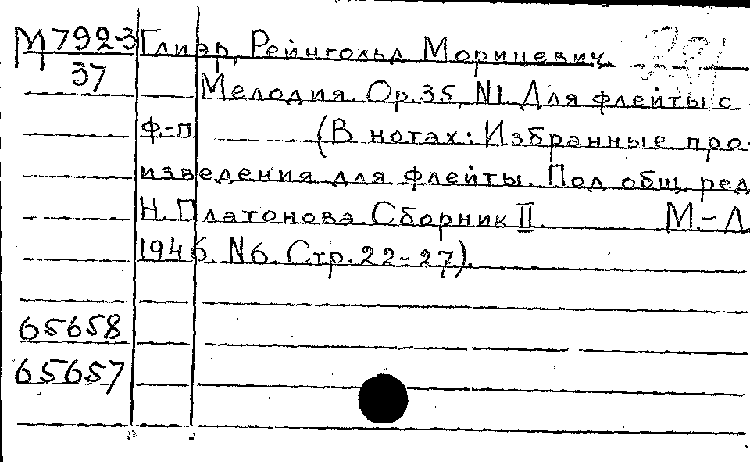 М 792-3 Глиэр, РейнгольдМорицевич
37
Мелодия. Ор.35, N1. Для флейты с
ф.-п. (В нотах: Избранные про-
изведения для флейты. Под общ. ред.
Н. Платонова. Сборник II. М.-Л.
1946. N6. Стр. 22-27).
65658
65657